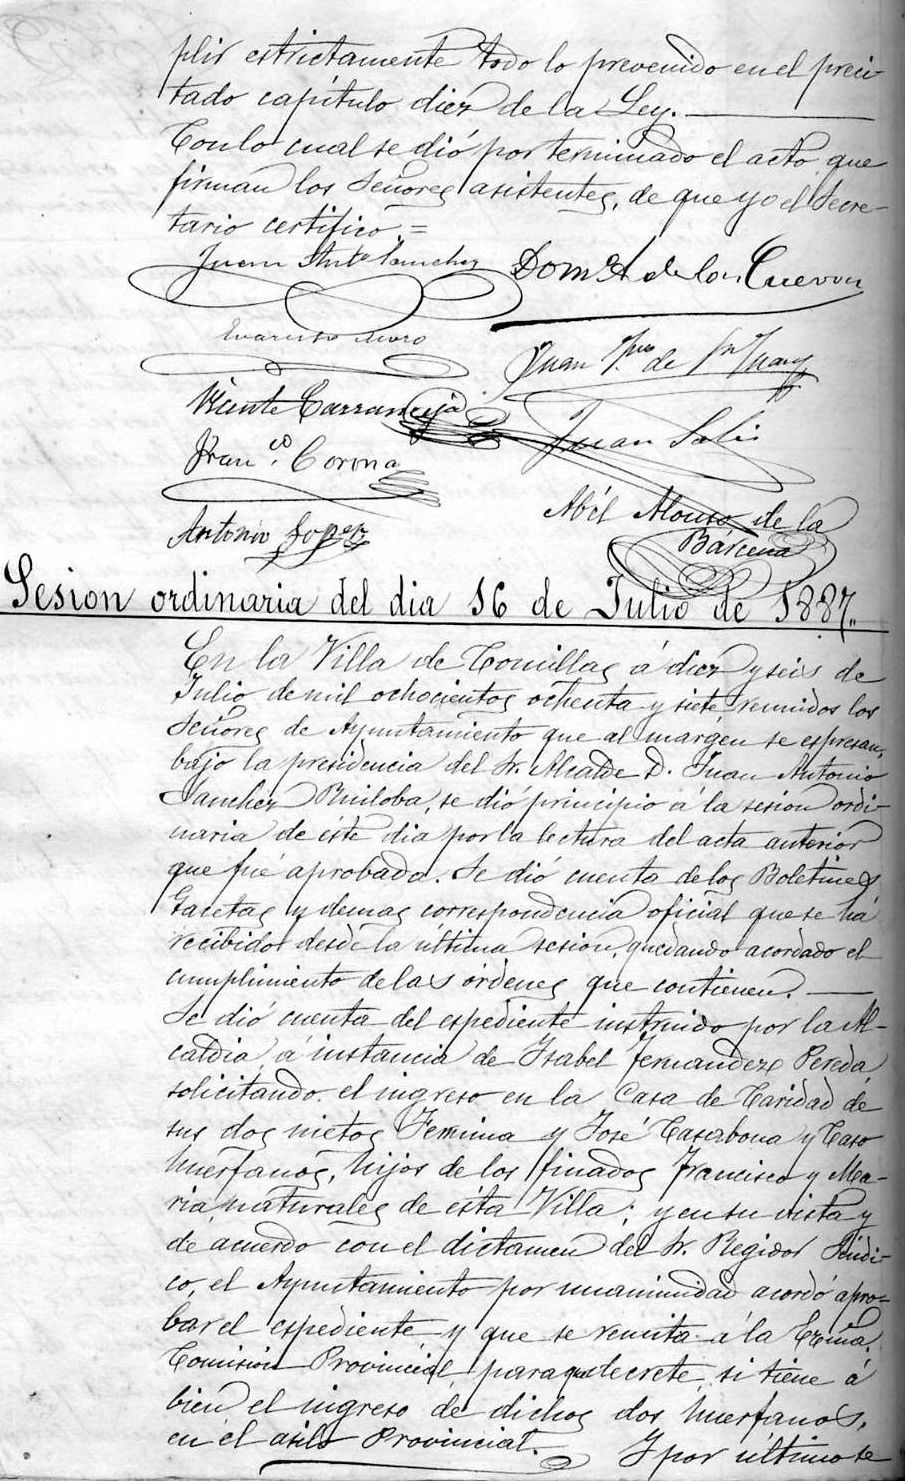 plir estrictamente todo lo prevenido en el preci-
tado capítulo diez de la Ley.
Con lo cual se dió por terminado el acto que
firman los Señores asistentes, de que yo el Secre-
tario certifico.=
Juan Antº Sanchez Domº A. de las Cuevas
Evaristo Moro
Juan de Sn Juan
Vicente Carranceja
Juan Solis
Franco. Corona
Abél Alonso de la
Bárcena
Antonio Lopez
Sesion ordinaria del dia 16 de Julio de 1887.
En la Villa de Comillas á diez y seis de
Julio de mil ochocientos ochenta y siete reunidos los
Señores de Ayuntamiento que al márgen se espresan,
bajo la presidencia del Sr. Alcalde D. Juan Antonio
Sanchez Ruiloba, se dió principio á la sesion ordi-
naria de éste dia por la lectura del acta anterior
que fué aprobada. Se dió cuenta de los Boletines
Gacetas y demas correspondencia oficial que se há
recibido desde la última sesion, quedando acordado el
cumplimiento de las órdenes que contienen.
Se dió cuenta del espediente instruido por la Al-
caldia á instancia de Isabel Fernandez Pereda
solicitando el ingreso en la Casa de Caridad de
sus dos nietos Fermina y José Caserbona y Caso
huerfanos, hijos de los finados Francisco y Ma-
ria, naturales de esta Villa; y en su vista y
de acuerdo con el dictamen del Sr. Regidor Síndi-
co, el Ayuntamiento por unanimidad acordó apro-
bar el espediente y que se remita á la Excma.
Comision Provincial para que decrete, si tiene á
bien el ingreso de dichos dos huerfanos,
en el asilo Provincial. Y por último se